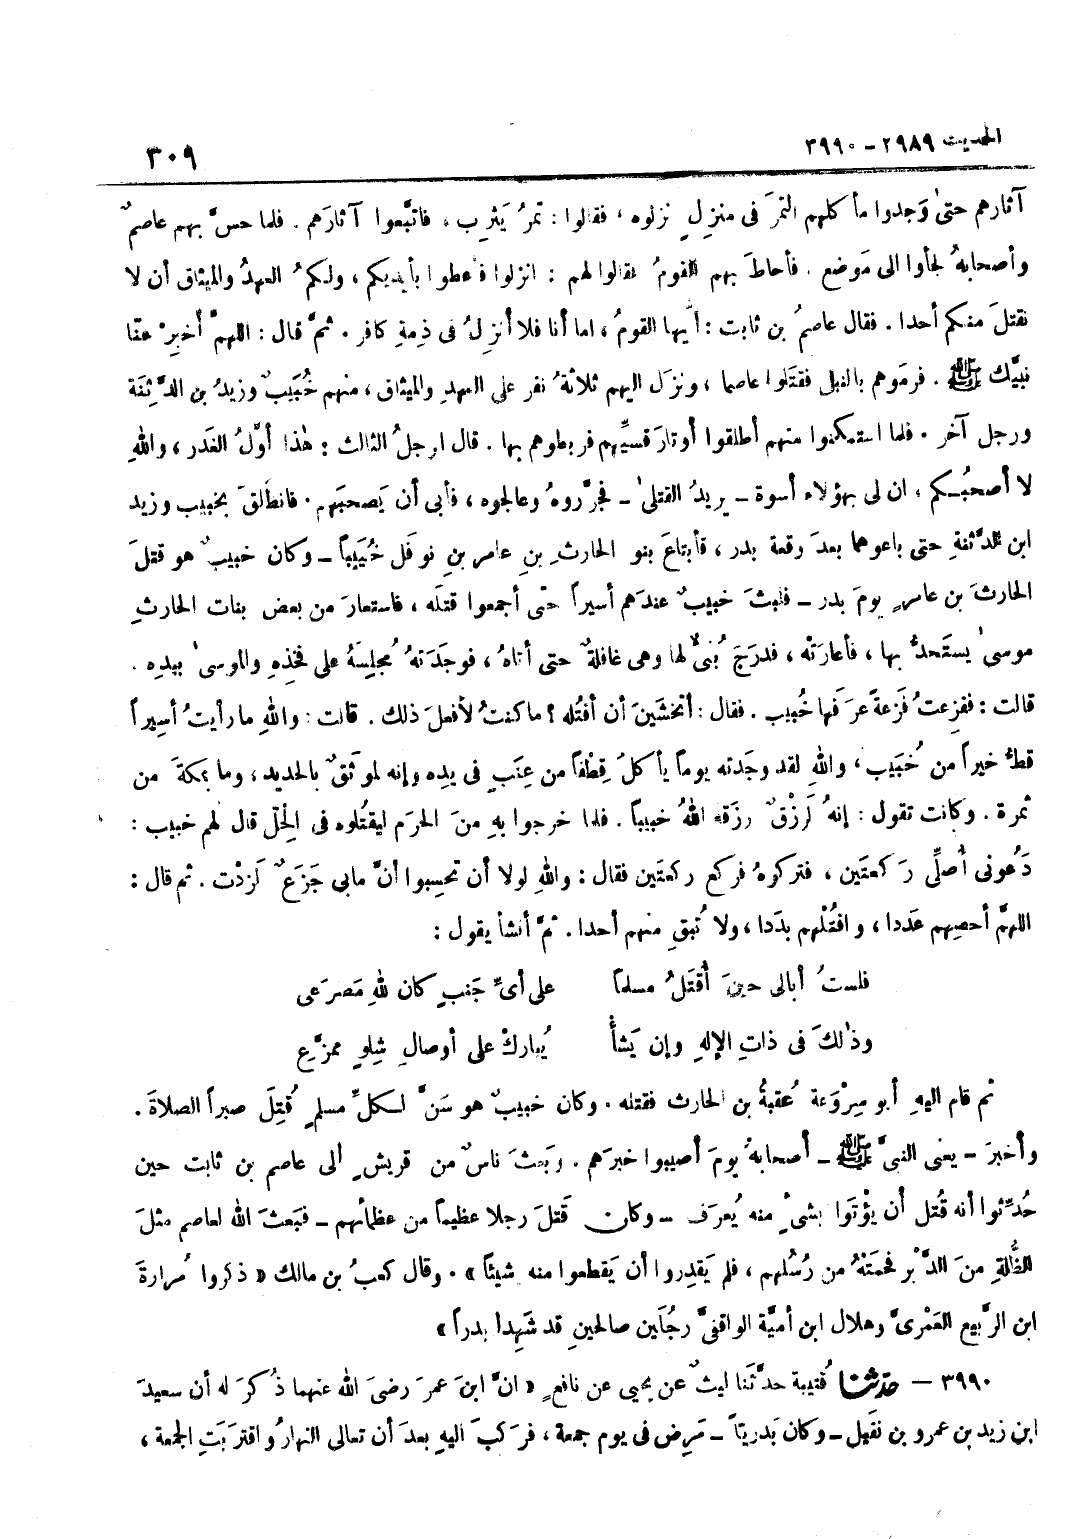 الحديث ٢٩٨٩ – ٣٩٩٠ ٣٠٩
آثارهم حتىٰ وَجدوا مأكلهم التمرَ فى منزلٍ نزلوه ، فقالوا : تمرُ يَثرِب ، فاتبَّعوا آثارَهم . فلما حسَّ بهم عاصمٌ
وأصحابهُ لجأوا الى مَوضع . فأحاطَ بهم القومُ فقالوا لهم : انزلوا فأعطوا بأيديكم ، ولكمُ العهدُ والميثاق أن لا
نقتلَ منكم أحدا . فقال عاصمُ بن ثابت : أيُّها القومُ ، اما أنا فلا أنزِلُ فى ذِمةِ كافر . ثمَّ قال : اللهمَّ أخبِرْ عنّا
نبيَّك ﷺ . فرمَوهم بالنبل فقتَلوا عاصما ، ونزَل اليهم ثلاثةُ نفر على العهدِ والميثاق ، منهم خُبَيبٌ وزيدُ بن الدَّثِنَة
ورجل آخر . فلما استمكنوا منهم أطلقوا أوتارَ قسيِّهم فربطوهم بها . قال الرجلُ الثالث : هٰذا أوَّلُ الغَدر ، واللهِ
لا أصحبُكم ، ان لى بهؤلاء أسوة – يريدُ القتلىٰ – فجرَّروهُ وعالجوه ، فأبى أن يَصحبَهم . فانطَلقَ بخبيب وزيد
ابن الدَّثنةِ حتى باعوهما بعدَ وقعة بدر ، فأبتاعَ بنو الحارثِ بنِ عامرِ بنِ نوفَل خُبَيباً – وكان خبيبٌ هو قتلَ
الحارثَ بن عامرٍ يومَ بدر – فلبثَ خبيبٌ عندَهم أسيراً حتّى أجمعوا قتلَه ، فاستعارَ من بعض بنات الحارثِ
موسىٰ يستَحدُّ بها ، فأعارَتْه ، فدرَجَ بُنىٌّ لها وهى غافلةٌ حتى أتاهُ ، فوجَدَتهُ مُجلِسَهُ على فخِذِهِ والموسىٰ بيدِه .
قالت : ففزِعتُ فَزعةً عرَفَها خُبيب . فقال : أتخشَينَ أن أقتُله ؟ ما كنتُ لأفعلَ ذلك . قالت : واللهِ ما رأيتُ أسِيراً
قطُّ خيراً من خُبَيب ، واللهِ لقد وجَدته يوماً يأكلُ قِطْفاً من عِنَبٍ فى يدِه وإنه لموثَقٌ بالحديد ، وما بمكةَ من
ثمرة . وكانت تقول : إنهُ لَرزْقٌ رزَقه اللهُ خبيبا . فلما خرجوا بهِ منَ الحرَم ليقتُلوه فى الِحلّ قال لهم خبيب :
دَعُونى أُصلِّى رَكعتَين ، فتركوهُ فركع ركعتَين فقال : واللهِ لولا أن تحسِبوا أنَّ مابى جَزَعٌ لَزدْت . ثم قال :
اللهمَّ أحصِهم عَددا ، واقتُلْهم بدَدا ، ولا تُبقِ منهم أحدا . ثمَّ أنشأ يقول :
فلستُ أبالى حينَ أُقتَلُ مسلما على أىِّ جَنبٍ كان للهِ مَصرَعى
وذٰلكَ فى ذاتِ الإلهِ وإن يَشأْ يُبارِكْ على أوصالِ شِلوٍ ممزَّعِ
ثم قام اليهِ أبو سِرْوَعة عُقبةُ بن الحارث فقتله . وكان خبيبٌ هو سَنَّ لكلِّ مسلمٍ قُتِلَ صبراً الصلاةَ .
وأخبرَ – يعنى النبىَّ ﷺ – أصحابهُ يومَ أصيبوا خبرَهم . وبَعثَ ناسٌ من قريشٍ الى عاصم بن ثابت حين
حُدِّثوا أنه قُتل أن يؤْتَوا بشىْءٍ منه يُعرَف – وكان قَتلَ رجلا عظيماً من عظمائهم – فبَعثَ الله لعاصم مثلَ
الظُّلةِ منَ الدَّبْر فحمَتْهُ من رُسُلهم ، فلم يَقدِروا أن يَقطعوا منه شيئاً » . وقال كعبُ بن مالك « ذكروا مُرارةَ
ابن الرَّبيع العَمْرىَّ وهلال ابن أميَّة الواقفىَّ رجُلَين صالحينِ قد شَهِدا بدراً »
٣٩٩٠ – حدّثنا قُتيبة حدَّثنا ليثٌ عن يحيى عن نافعٍ « انَّ ابنَ عمرَ رضىَ الله عنهما ذُكرَ له أن سعيدَ
ابن زيد بن عمرو بن نفَيل – وكان بَدريّاً – مَرِض فى يوم جمعة ، فرَكبَ اليهِ بعدَ أن تعالى النهارُ واقترَبَتِ الجمعة ،